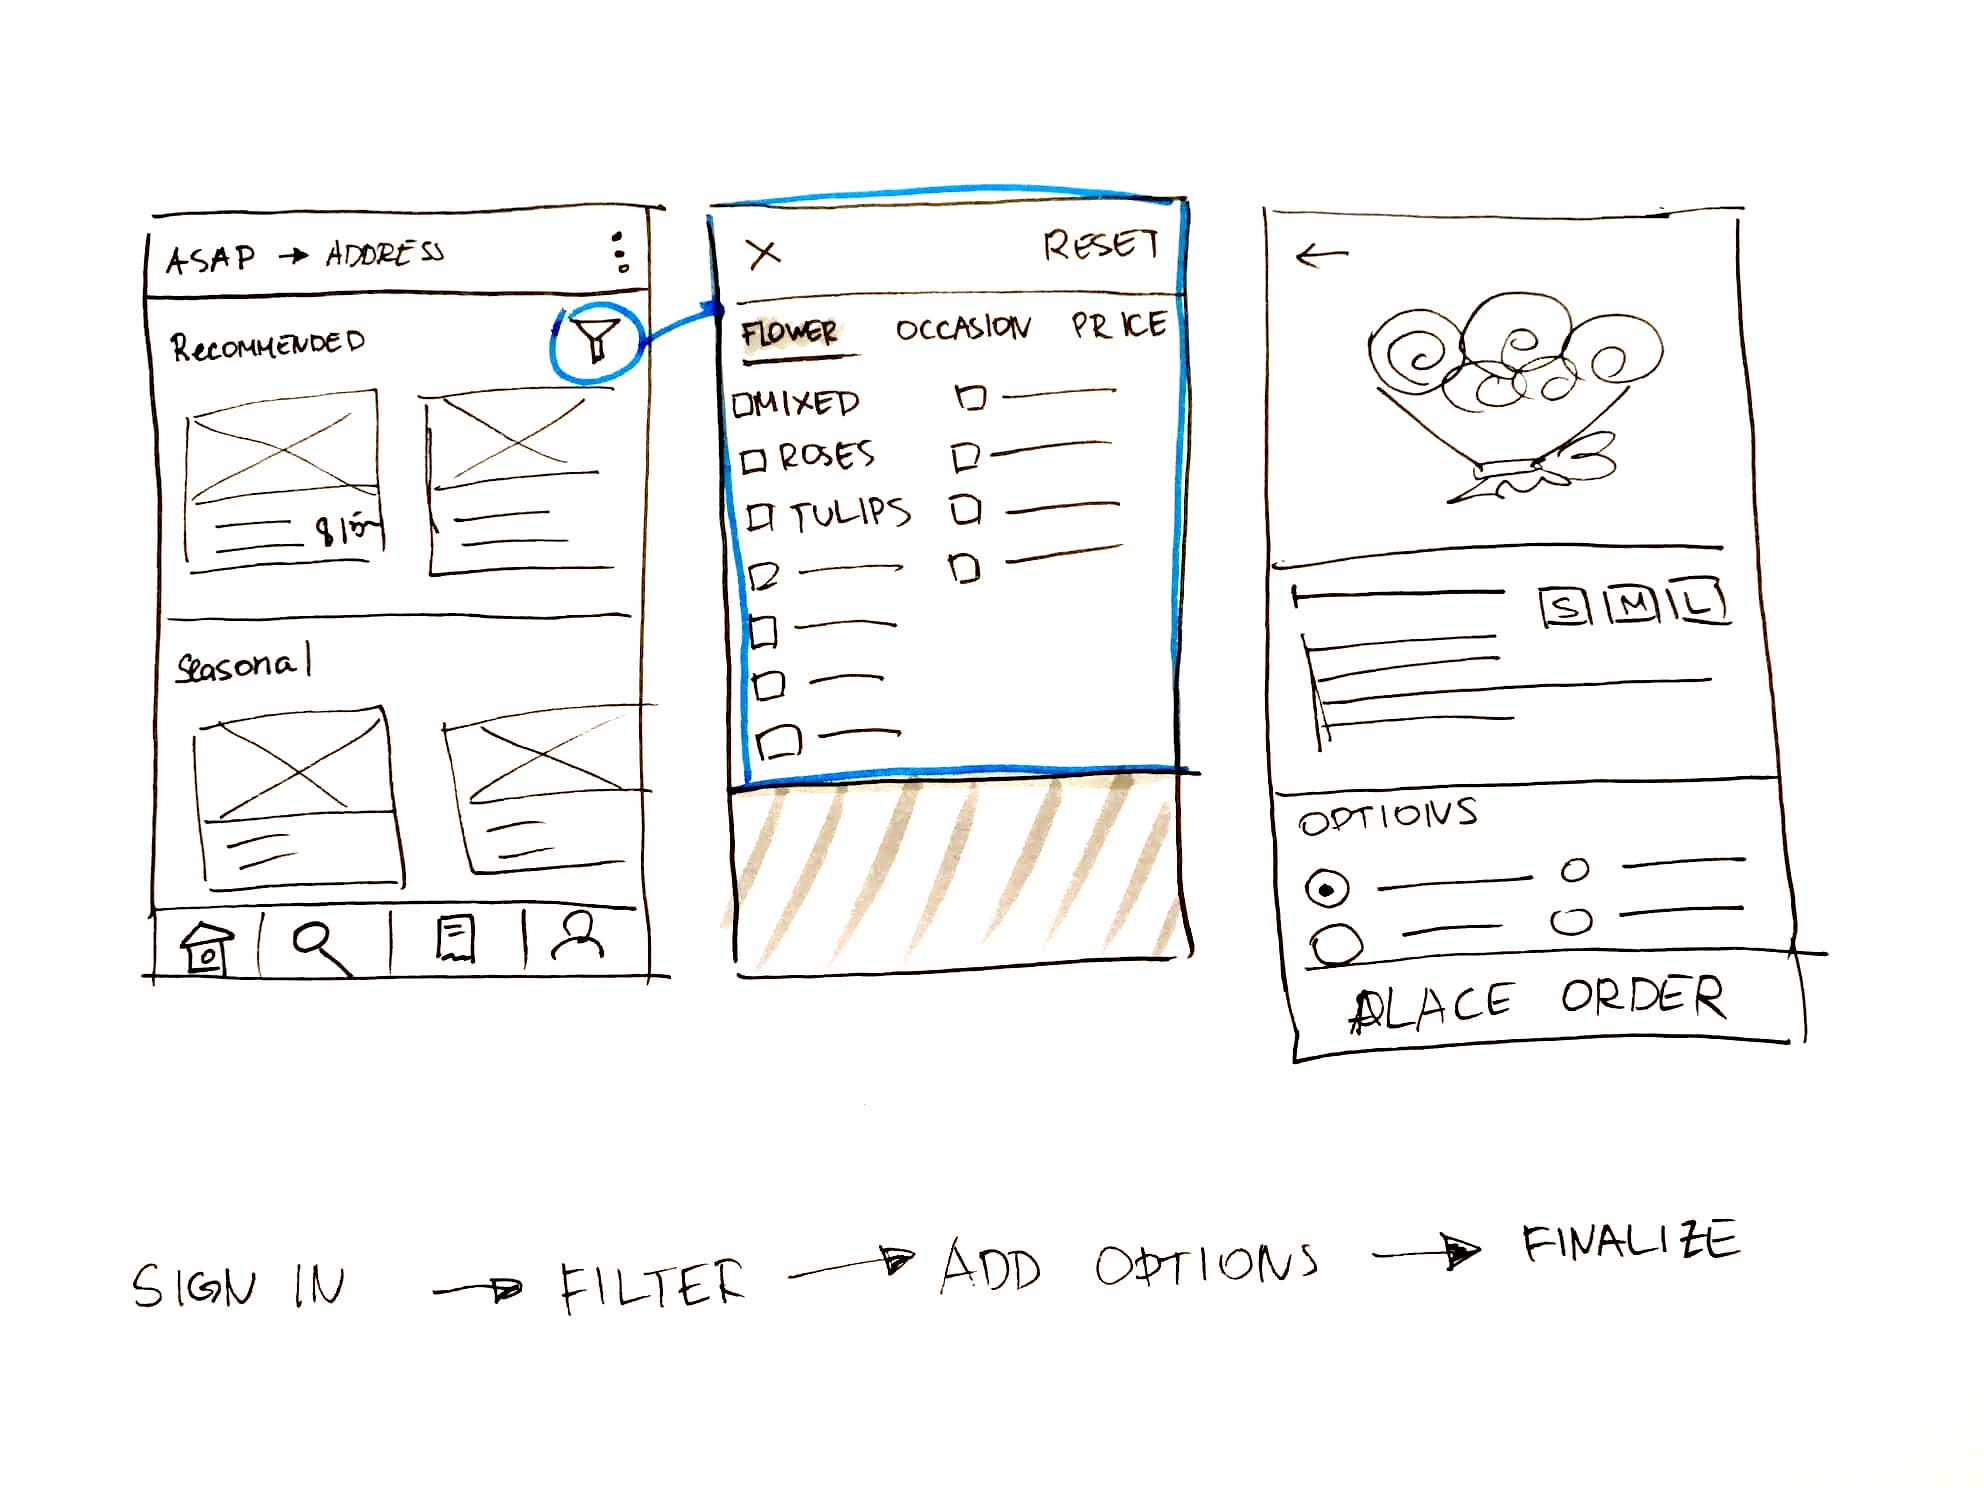 ASAP → ADDRESS
RECOMMENDED
Seasonal
X RESET
FLOWER OCCASION PRICE
MIXED
ROSES
TULIPS
S M L
OPTIONS
PLACE ORDER
SIGN IN → FILTER → ADD OPTIONS → FINALIZE